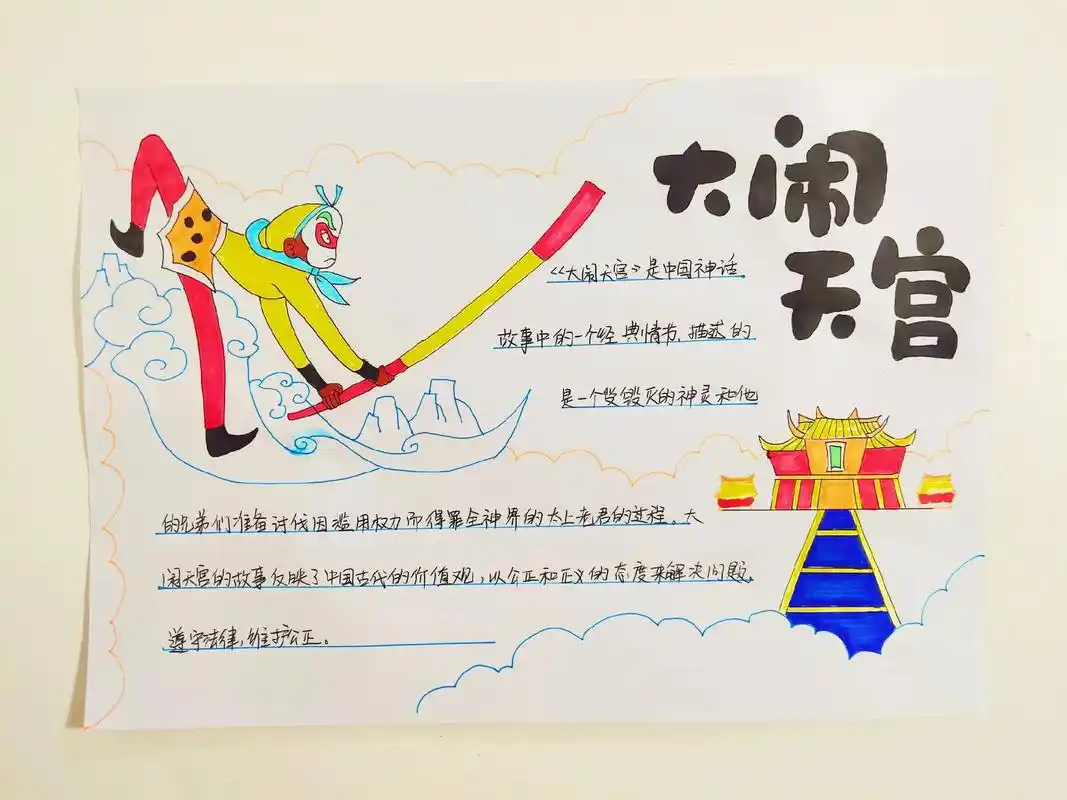 大闹
天宫
《大闹天宫》是中国神话
故事中的一个经典情节,描述的
是一个毁灭的神灵和他
的兄弟们准备讨伐因滥用权力而得罪全神界的太上老君的过程。大
闹天宫的故事反映了中国古代的价值观,以公正和正义的态度来解决问题,
遵守法律,维护公正。